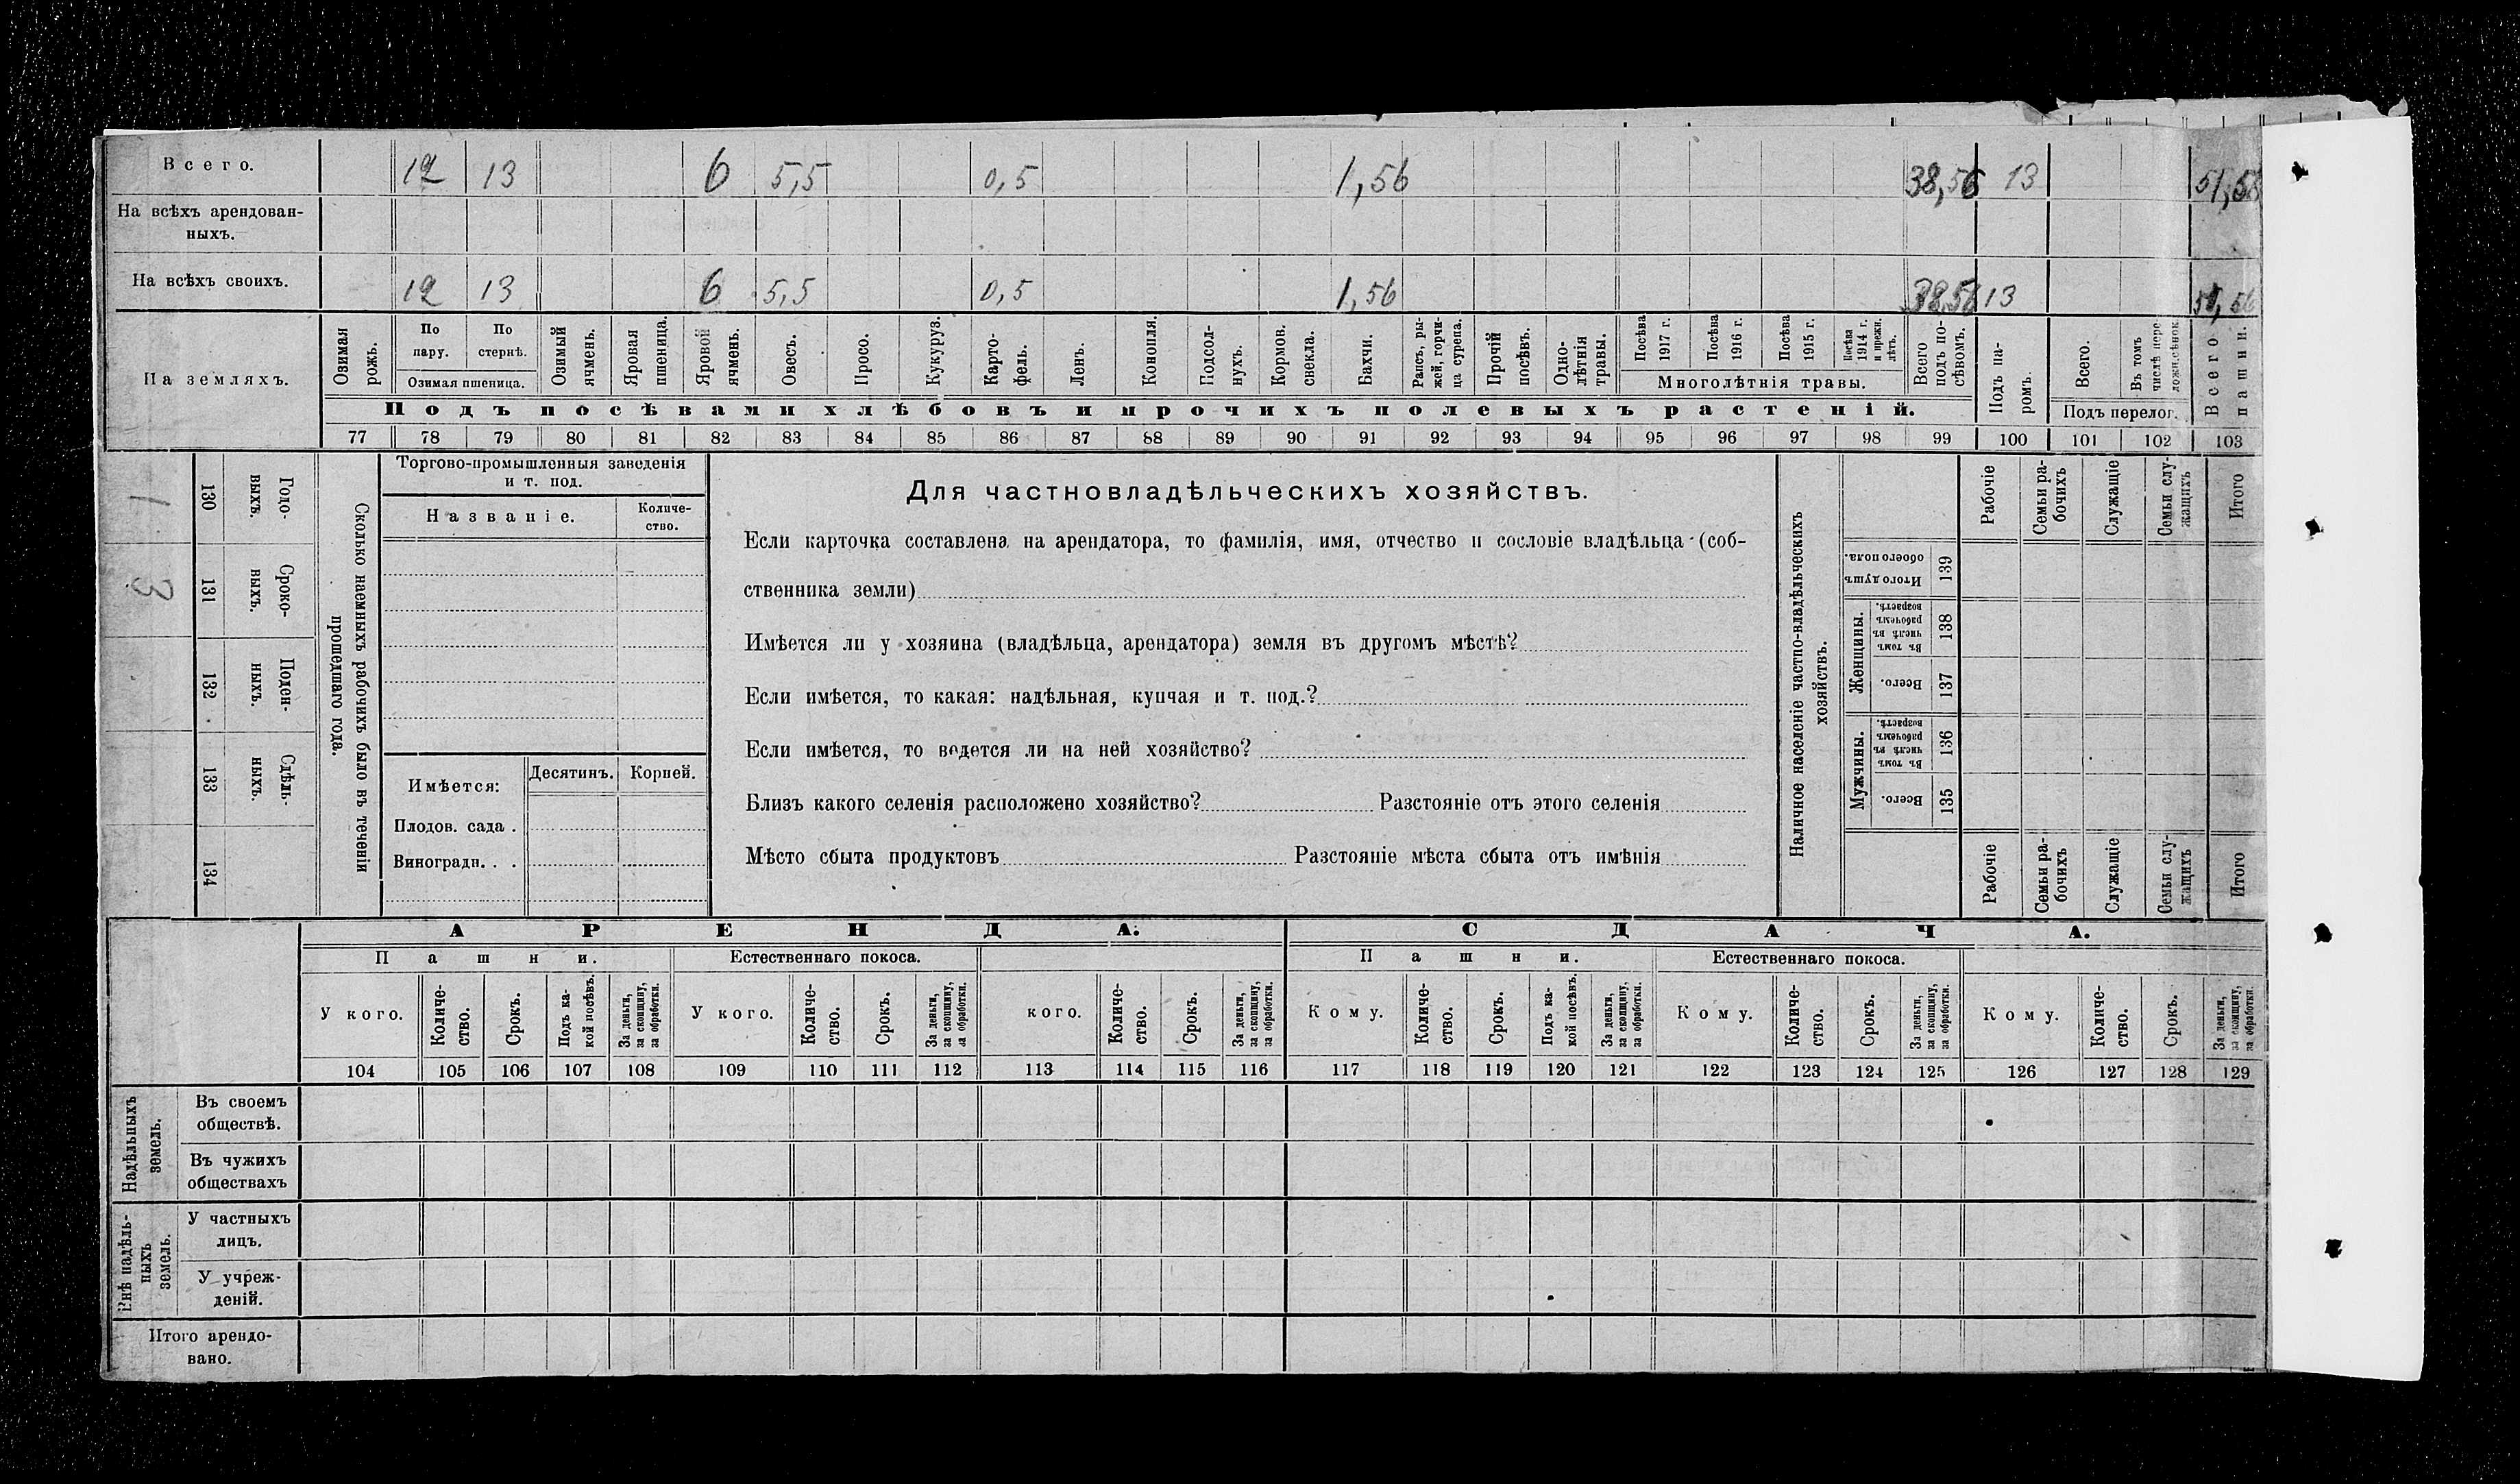 Всего. 12 13 6 5,5 0,5 1,56 38,56 13 51,56
На всѣхъ арендован-
ныхъ.
На всѣхъ своихъ. 12 13 6 5,5 0,5 1,56 38,56 13 51,56
На земляхъ.
Озимая рожь.
По пару.
По стернѣ.
Озимая пшеница.
Озимый ячмень.
Яровая пшеница.
Яровой ячмень.
Овесъ.
Просо.
Кукуруз.
Карто-
фель.
Ленъ.
Конопля.
Подсол-
нухъ.
Кормов. свекла.
Бахчи.
Рапсъ, ры-
жей, горчи-
ца сурепа.
Прочій посѣвъ.
Одно-
лѣтнія
травы.
Посѣва 1917 г.
Посѣва 1916 г.
Посѣва 1915 г.
Посѣва 1914 г. и прежн. лѣтъ.
Многолѣтнія травы.
Всего подъ по-
сѣвомъ.
Подъ па-
ромъ.
Всего.
Въ томъ числѣ пере-
ложн. сѣнок.
Подъ перелог.
Всего пашни.
Подъ посѣвами хлѣбовъ и прочихъ полевыхъ растеній.
77 78 79 80 81 82 83 84 85 86 87 88 89 90 91 92 93 94 95 96 97 98 99 100 101 102 103
1 130 Годо-
выхъ.
3 131 Сроко-
выхъ.
132 Поден-
ныхъ.
133 Сдѣль-
ныхъ.
134
Сколько наемныхъ рабочихъ было въ теченіи
прошедшаго года.
Торгово-промышленныя заведенія
и т. под.
Названіе. Количе-
ство.
Имѣется: Десятинъ. Корней.
Плодов. сада .
Виноградн. . .
Для частновладѣльческихъ хозяйствъ.
Если карточка составлена на арендатора, то фамилія, имя, отчество и сословіе владѣльца (соб-
ственника земли)
Имѣется ли у хозяина (владѣльца, арендатора) земля въ другомъ мѣстѣ?
Если имѣется, то какая: надѣльная, купчая и т. под.?
Если имѣется, то ведется ли на ней хозяйство?
Близъ какого селенія расположено хозяйство? Разстояніе отъ этого селенія
Мѣсто сбыта продуктовъ Разстояніе мѣста сбыта отъ имѣнія
Наличное населеніе частно-владѣльческихъ
хозяйствъ.
Рабочіе
Семьи ра-
бочихъ
Служащіе
Семьи слу-
жащихъ
Итого
Итого душъ
обоего пола.
139
Женщины.
Въ томъ
числѣ въ
рабочемъ
возрастѣ.
138
Всего.
137
Мужчины.
Въ томъ
числѣ въ
рабочемъ
возрастѣ.
136
Всего.
135
Рабочіе
Семьи ра-
бочихъ
Служащіе
Семьи слу-
жащихъ
Итого
АРЕНДА. СДАЧА.
Пашни. Естественнаго покоса. Пашни. Естественнаго покоса.
У кого.
Количе-
ство.
Срокъ.
Подъ ка-
кой посѣвъ.
За деньги,
за скопщину,
за обработки.
У кого.
Количе-
ство.
Срокъ.
За деньги,
за скопщину,
за обработки.
кого.
Количе-
ство.
Срокъ.
За деньги,
за скопщину,
за обработки.
Кому.
Количе-
ство.
Срокъ.
Подъ ка-
кой посѣвъ.
За деньги,
за скопщину,
за обработки.
Кому.
Количе-
ство.
Срокъ.
За деньги,
за скопщину,
за обработки.
Кому.
Количе-
ство.
Срокъ.
За деньги,
за скопщину,
за обработки.
104 105 106 107 108 109 110 111 112 113 114 115 116 117 118 119 120 121 122 123 124 125 126 127 128 129
Надѣльныхъ
земель.
Въ своемъ
обществѣ.
Въ чужихъ
обществахъ
Внѣ надѣль-
ныхъ
земель.
У частныхъ
лицъ.
У учреж-
деній.
Итого арендо-
вано.